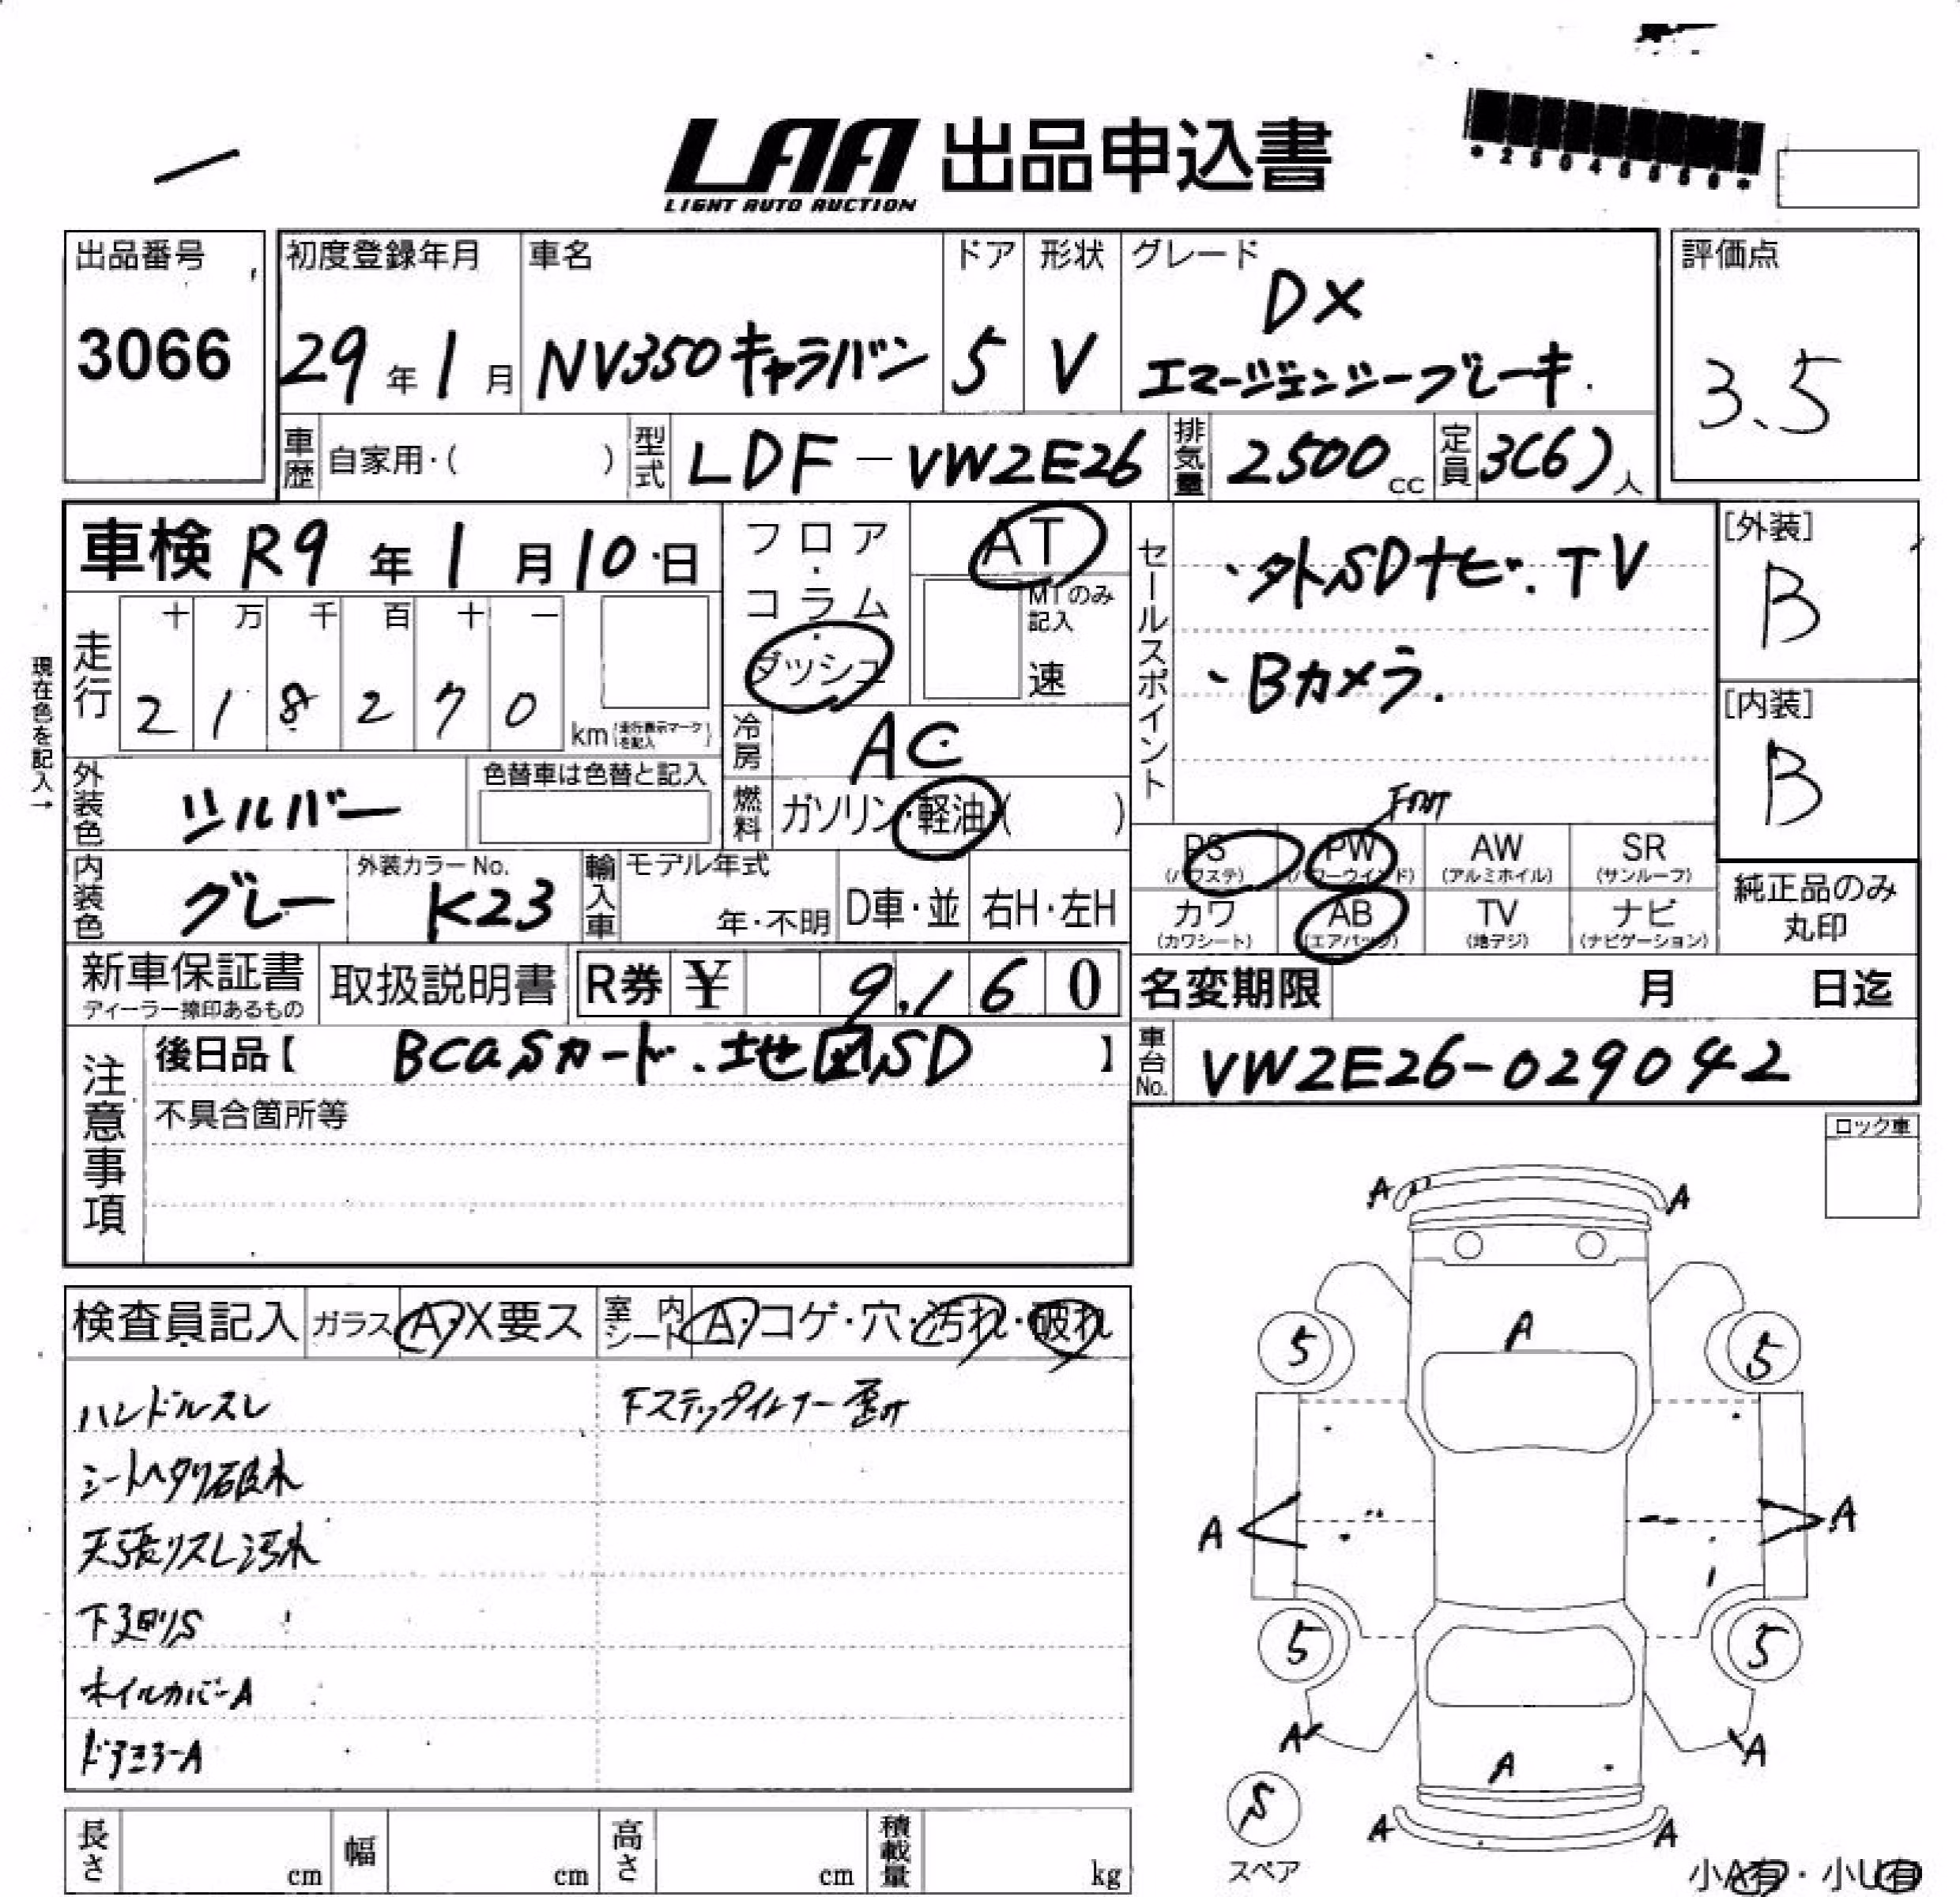 LAA 出品申込書
LIGHT AUTO AUCTION
出品番号
3066
初度登録年月
29年1月
車名
NV350キャラバン
ドア
5
形状
V
グレード
DX
エマージェンシーブレーキ
評価点
3.5
車歴 自家用・( )
型式 LDF-VW2E26
排気量 2500cc
定員 3(6)人
車検 R9年1月10日
フロア・コラム・ダッシュ
AT
MTのみ記入
速
セールスポイント
・外SDナビ.TV
・Bカメラ.
[外装]
B
[内装]
B
現在色を記入→
走行
十 万 千 百 十 一
2 1 8 2 7 0
km (走行表示マークを記入)
冷房 AC
外装色 シルバー
色替車は色替と記入
燃料 ガソリン・軽油・( )
PS (パワステ)
PW (パワーウインド)
AW (アルミホイル)
SR (サンルーフ)
カワ (カワシート)
AB (エアバッグ)
TV (地デジ)
ナビ (ナビゲーション)
純正品のみ
丸印
内装色 グレー
外装カラーNo. K23
輸入車
モデル年式
年・不明
D車・並
右H・左H
新車保証書
ディーラー捺印あるもの
取扱説明書
R券 ¥ 9,160
名変期限 月 日迄
注意事項
後日品【 BCASカード.地図SD 】
不具合箇所等
車台No. VW2E26-029042
ロック車
検査員記入
ガラス A・X要ス
室内シート A・コゲ・穴・汚れ・破れ
ハンドルスレ
シートヘタリ破れ
天張リスレ汚れ
下廻りS
ホイルカバーA
ドアミラーA
下ステップインナー歪み
A A
A
5 5
A A
5 5
A A
A
S
スペア
A A
小A有・小U有
長さ cm
幅 cm
高さ cm
積載量 kg